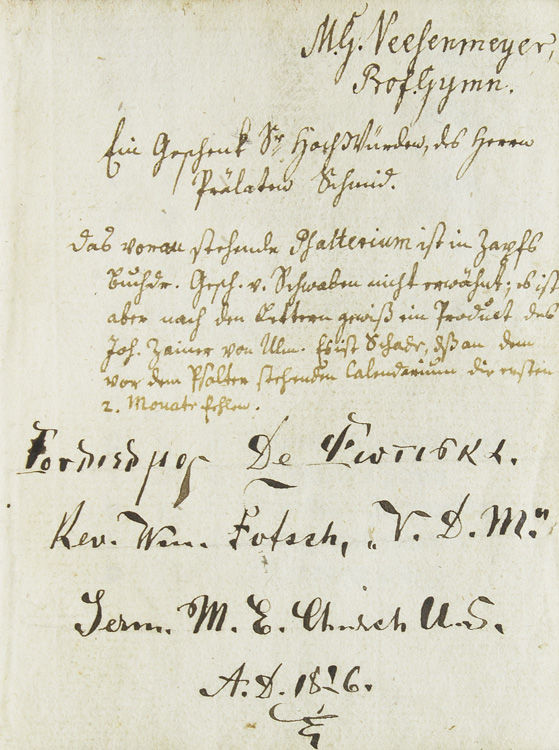 M. G. Veesenmeyer,
Prof. Gymn.
Ein Geschenk Sr. HochWürden, des Herrn
Prälaten Schmid.
Das voran stehende Psalterium ist in Zapfs
Buchdr. Gesch. v. Schwaben nicht erwähnt; es ist
aber nach den Lettern gewiß ein Product des
Joh. Zainer von Ulm. Es ist Schade, dß an dem
vor dem Psalter stehenden Calendarium die ersten
2. Monate fehlen.
De
Rev. Wm. Fotsch, „V. D. M."
Germ. M. E. Church U.S.
A.D.